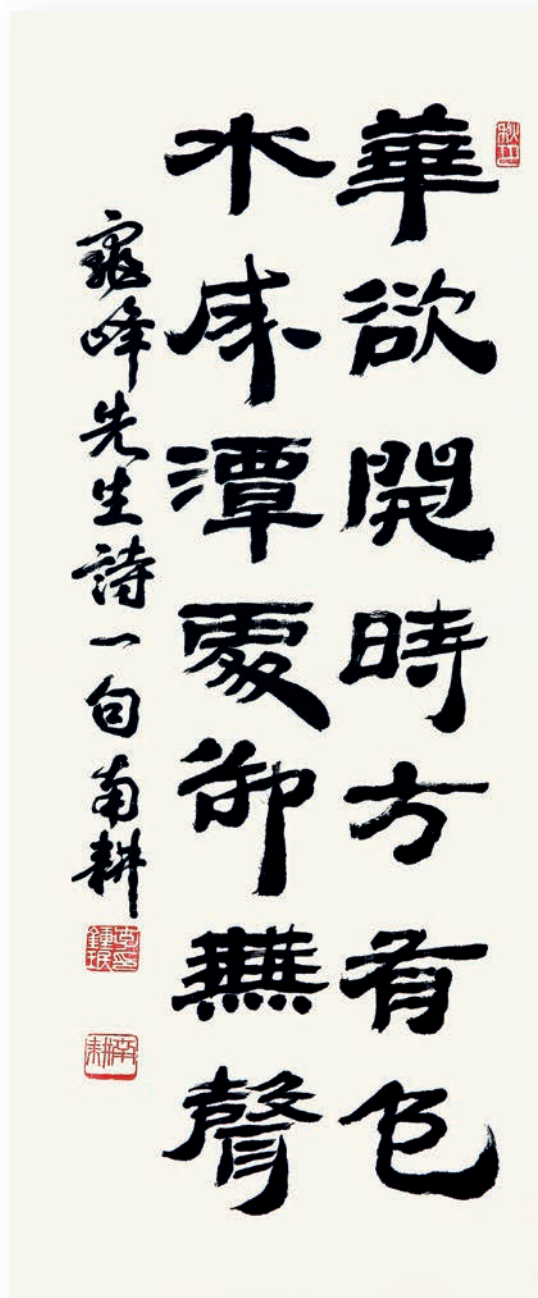 華欲開時方有色
水成潭處卻無聲
龜峰先生詩一句南耕
南耕